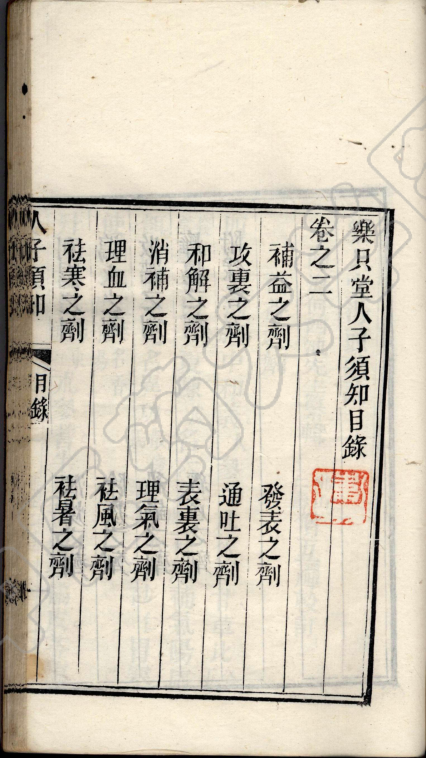 樂只堂人子須知目錄
卷之二
補益之劑　發表之劑
攻裏之劑　通吐之劑
和解之劑　表裏之劑
消補之劑　理氣之劑
理血之劑　祛風之劑
祛寒之劑　祛暑之劑
人子須知　目錄